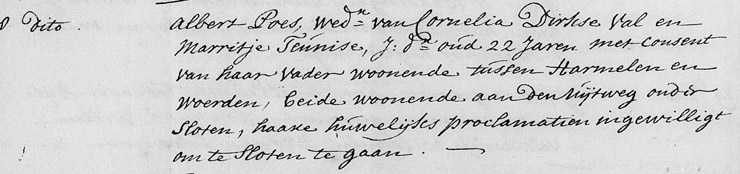 dito. Albert Poes, wedr. van Cornelia Dirkse Val en
Marritje Teunise, J: dr. oud 22 Jaren met consent
van haar vader woonende tussen Harmelen en
Woerden, beide woonende aan den uijtweg onder
Sloten, haare huwelijks proclamatien ingewilligt
om te Sloten te gaan.